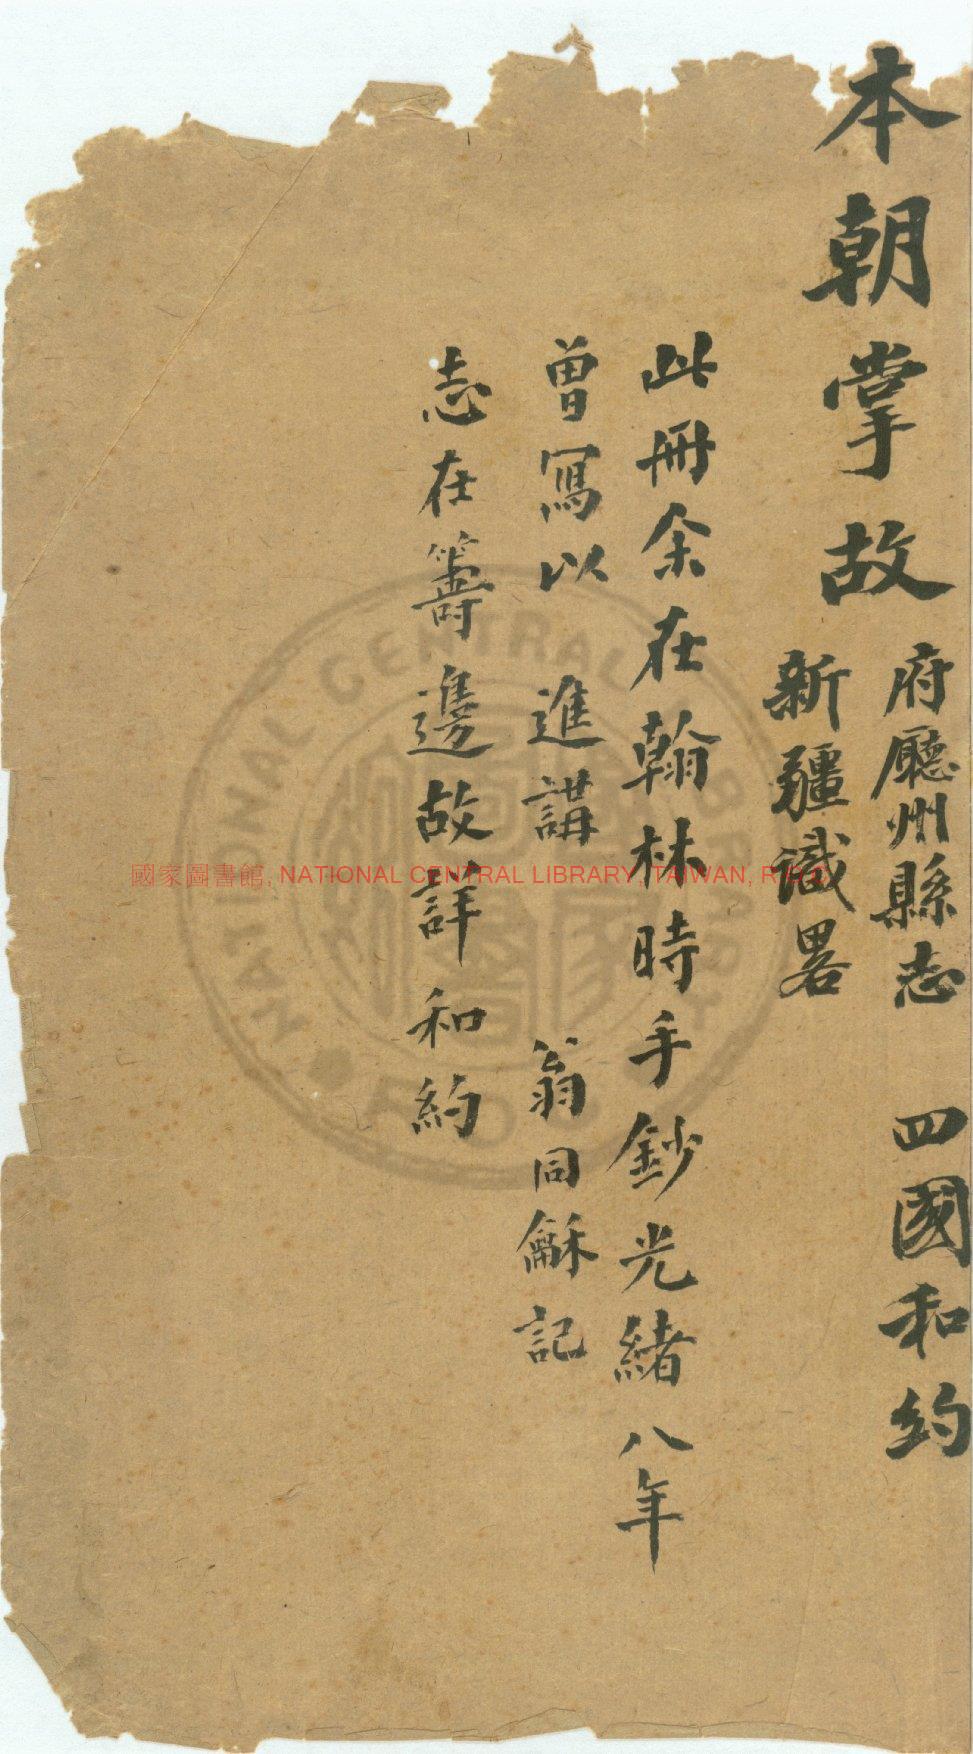 本朝掌故
府廳州縣志 四國和約
新疆識畧
此冊余在翰林時手鈔光緒八年
曾寫以 進講 翁同龢記
志在籌邊故詳和約
國家圖書館, NATIONAL CENTRAL LIBRARY, TAIWAN, R.O.C
NATIONAL CENTRAL LIBRARY R.O.C